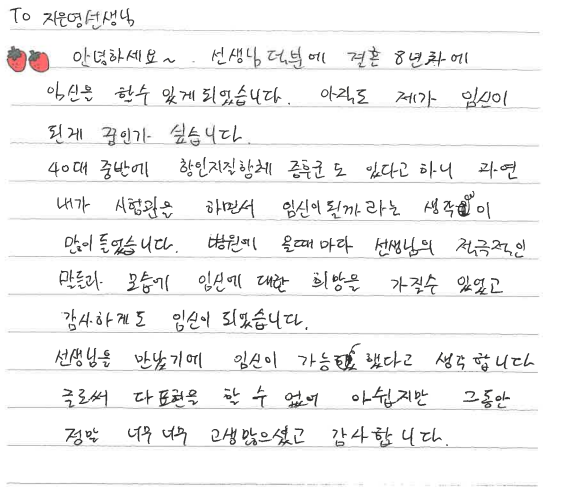 To 지은영선생님
안녕하세요~. 선생님 덕분에 결혼 8년차에
임신을 할수 있게 되었습니다. 아직도 제가 임신이
된게 꿈인가 싶습니다.
40대 중반에 항인지질항체 증후군도 있다고 하니 과연
내가 시험관을 하면서 임신이 될까 라는 생각이
많이 들었습니다. 병원에 올때마다 선생님의 적극적인
말들과 모습에 임신에 대한 희망을 가질수 있었고
감사하게도 임신이 되었습니다.
선생님을 만났기에 임신이 가능했다고 생각합니다
글로써 다 표현을 할 수 없어 아쉽지만 그동안
정말 너무 너무 고생많으셨고 감사합니다.